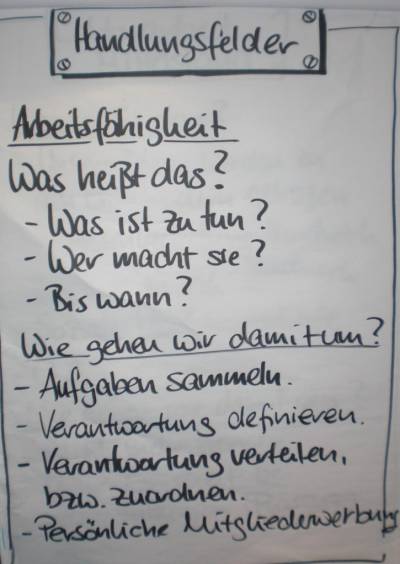 Handlungsfelder
Arbeitsfähigkeit
Was heißt das?
- Was ist zu tun?
- Wer macht sie?
- Bis wann?
Wie gehen wir damit um?
- Aufgaben sammeln.
- Verantwortung definieren.
- Verantwortung verteilen,
bzw. zuordnen.
- Persönliche Mitgliederwerbung